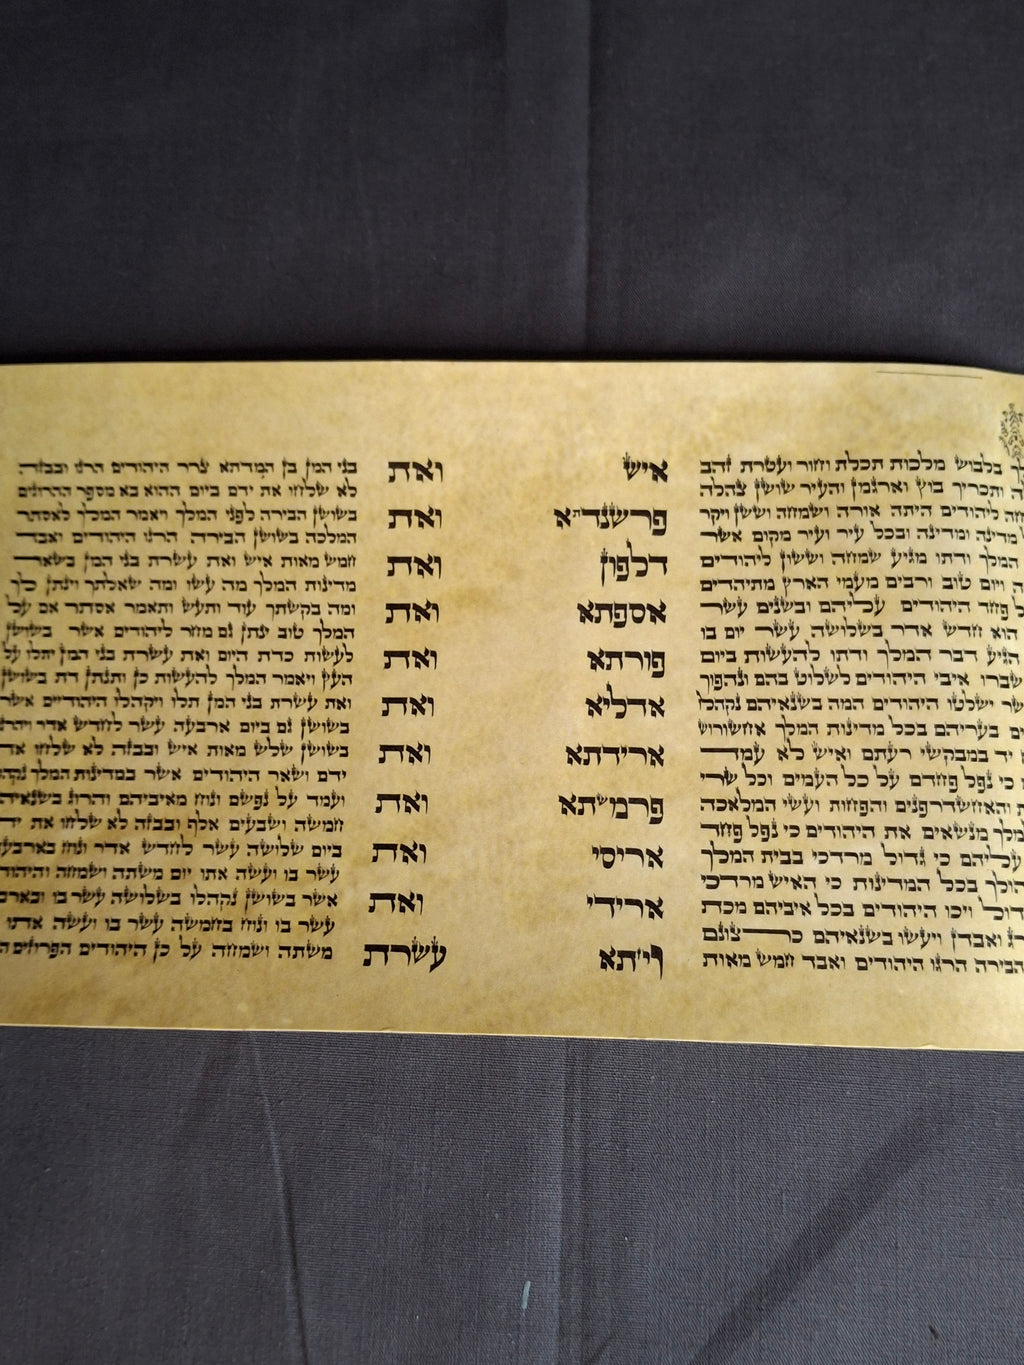 בלבוש מלכות תכלת וחור ועטרת זהב
ותכריך בוץ וארגמן והעיר שושן צהלה
ליהודים היתה אורה ושמחה וששן ויקר
מדינה ומדינה ובכל עיר ועיר מקום אשר
המלך ודתו מגיע שמחה וששון ליהודים
ויום טוב ורבים מעמי הארץ מתיהדים
פחד היהודים עליהם ובשנים עשר
הוא חדש אדר בשלושה עשר יום בו
הגיע דבר המלך ודתו להעשות ביום
שברו איבי היהודים לשלוט בהם ונהפוך
ישלטו היהודים המה בשנאיהם נקהלו
בעריהם בכל מדינות המלך אחשורוש
יד במבקשי רעתם ואיש לא עמד
כי נפל פחדם על כל העמים וכל שרי
והאחשדרפנים והפחות ועשי המלאכה
מנשאים את היהודים כי נפל פחד
עליהם כי גדול מרדכי בבית המלך
הולך בכל המדינות כי האיש מרדכי
ויכו היהודים בכל איביהם מכת
ואבדן ויעשו בשנאיהם כרצונם
הבירה הרגו היהודים ואבד חמש מאות
איש ואת
פרשנדתא ואת
דלפון ואת
אספתא ואת
פורתא ואת
אדליא ואת
ארידתא ואת
פרמשתא ואת
אריסי ואת
ארידי ואת
ויזתא עשרת
בני המן בן המדתא צרר היהודים הרגו ובבזה
לא שלחו את ידם ביום ההוא בא מספר ההרוגים
בשושן הבירה לפני המלך ויאמר המלך לאסתר
המלכה בשושן הבירה הרגו היהודים ואבד
חמש מאות איש ואת עשרת בני המן בשאר
מדינות המלך מה עשו ומה שאלתך וינתן לך
ומה בקשתך עוד ותעש ותאמר אסתר אם על
המלך טוב ינתן גם מחר ליהודים אשר בשושן
לעשות כדת היום ואת עשרת בני המן יתלו על
העץ ויאמר המלך להעשות כן ותנתן דת בשושן
ואת עשרת בני המן תלו ויקהלו היהודיים אשר
בשושן גם ביום ארבעה עשר לחדש אדר ויהרגו
בשושן שלש מאות איש ובבזה לא שלחו את
ידם ושאר היהודים אשר במדינות המלך נקהלו
ועמד על נפשם ונוח מאיביהם והרוג בשנאיהם
חמשה ושבעים אלף ובבזה לא שלחו את ידם
ביום שלושה עשר לחדש אדר ונוח בארבעה
עשר בו ועשה אתו יום משתה ושמחה והיהודים
אשר בשושן נקהלו בשלושה עשר בו ובארבעה
עשר בו ונוח בחמשה עשר בו ועשה אתו
משתה ושמחה על כן היהודים הפרוזים